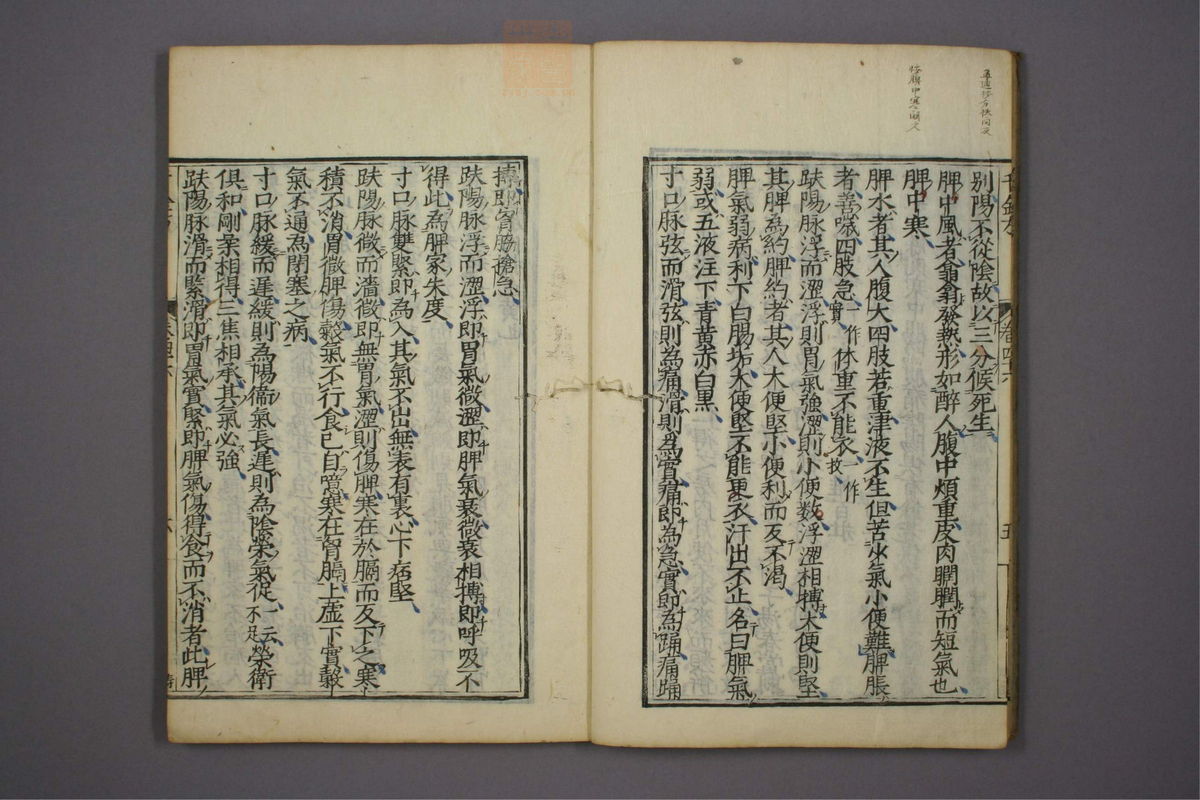 別陽不從陰故以三分候死生
脾中風者翕翕發熱形如醉人腹中煩重皮肉瞤瞤而短氣也
脾中寒
脾水者其人腹大四肢苦重津液不生但苦少氣小便難脾脹
者喜噦四肢急一作實体重不能衣一作收
趺陽脉浮而澀浮則胃氣強澀則小便數浮澀相搏大便則堅
其脾為約脾約者其人大便堅小便利而反不渴
脾氣弱病利下白腸垢大便堅不能更衣汗出不止名曰脾氣
弱或五液注下青黃赤白黑
寸口脉弦而滑弦則為痛滑則為實痛即為急實即為踊痛踊
搏即胷脇搶急
趺陽脉浮而澀浮即胃氣微澀即脾氣衰微衰相搏即呼吸不
得此為脾家失度
寸口脉雙緊即為入其氣不出無表有裏心下痞堅
趺陽脉微而澀微即無胃氣澀則傷脾寒在於膈而反下之寒
積不消胃微脾傷穀氣不行食已自噫寒在胷膈上虛下實穀
氣不通為閉塞之病
寸口脉緩而遲緩則為陽衛氣長遲則為陰榮氣促一云不足榮衛
俱和剛柔相得三焦相承其氣必強
趺陽脉滑而緊滑即胃氣實緊即脾氣傷得食而不消者此脾